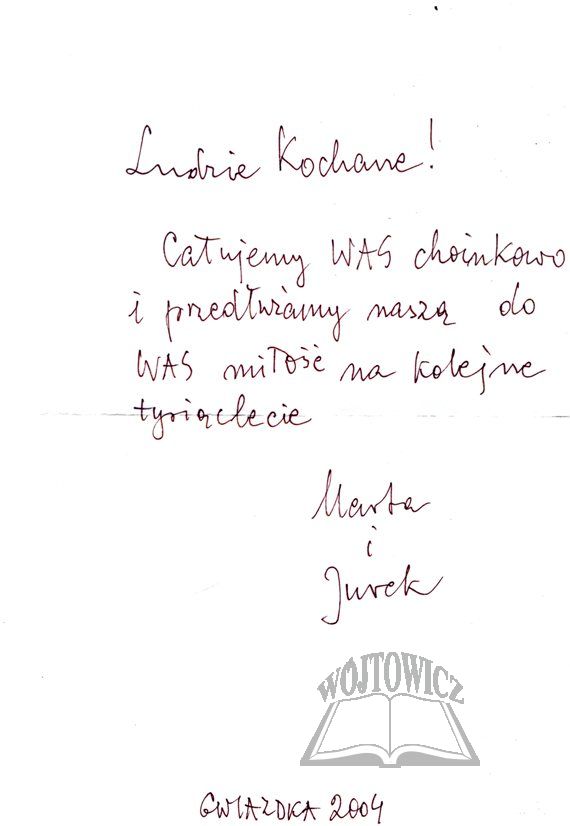 Ludzie Kochane!
Całujemy WAS choinkowo
i przedłużamy naszą do
WAS miłość na kolejne
tysiąclecie
Marta
i
Jurek
WÓJTOWICZ
GWIAZDKA 2004